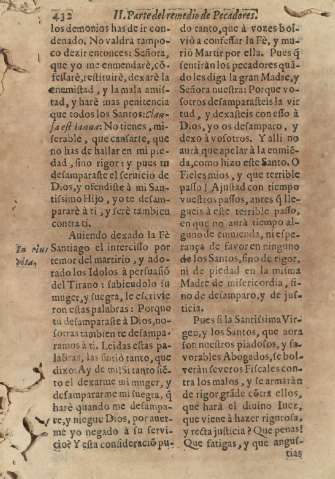 432 II. Parte del remedio de Pecadores.
los demonios has de ir con-
denado. No valdrà tampo-
co dezir entonces: Señora,
que yo me enmendarè, cõ-
fessarè, restituirè, dexarè la
enemistad, y la mala amis-
tad, y harè mas penitencia
que todos los Santos: Clau-
sa est ianua: No tienes, mi-
serable, que cansarte, que
no has de hallar en mi pie-
dad, sino rigor: y pues tu
desamparaste el seruicio de
Dios, y ofendiste à mi San-
tissimo Hijo, yo te desam-
pararè à ti, y serè tambien
contra ti.
Auiendo dexado la Fè
Santiago el intercisso por
temor del martirio, y ado-
rado los Idolos à persuasiõ
del Tirano: sabiendolo su
muger, y suegra, le escriuie
ron estas palabras: Porque
tu desamparaste à Dios, no-
sotras tambien te desampa-
ramos à ti. Leidas estas pa-
labras, las sintiò tanto, que
dixo: Ay de mi! Si tanto siẽ-
to el dexarme mi muger, y
desampararme mi suegra, q̃
harè quando me desampa-
re, y niegue Dios, por auer-
me yo negado à su servi-
cio? Y esta consideraciõ pu-
In eius
vita.
do tanto, que à vozes bol-
viò à confessar la Fè, y mu-
riò Martir por ella. Pues q̃
sentiràn los pecadores quã-
do les diga la gran Madre, y
Señora nuestra: Porque vo-
sotros desamparasteis la vir
tud, y dexasteis con esso à
Dios, yo os desamparo, y
dexo à vosotros. Y alli no
aurà que apelar à la enmiẽ-
da, como hizo este Santo. O
Fieles mios, y que terrible
passo! Ajustad con tiempo
vuestros passos, antes q̃ lle-
gueis à este terrible passo,
en que no aurà tiempo al-
guno de enmienda, ni espe-
rança de favor en ninguno
de los Santos, sino de rigor,
ni de piedad en la misma
Madre de misericordia, si-
no de desamparo, y de jus-
ticia.
Pues si la Santissima Vir-
gen, y los Santos, que aora
son nuestros piadosos, y fa-
vorables Abogados, se bol-
veràn severos Fiscales con-
tra los malos, y se armaràn
de rigor grãde cõtra ellos,
que harà el divino Iuez,
que viene à hazer rigurosa,
y recta justicia? Que penas!
Que fatigas, y que angus-
tias